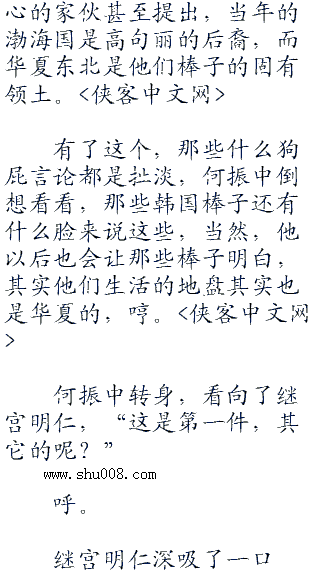 心的家伙甚至提出，当年的
渤海国是高句丽的后裔，而
华夏东北是他们棒子的固有
领土。<侠客中文网>
有了这个，那些什么狗
屁言论都是扯淡，何振中倒
想看看，那些韩国棒子还有
什么脸来说这些，当然，他
以后也会让那些棒子明白，
其实他们生活的地盘其实也
是华夏的，哼。<侠客中文网
>
何振中转身，看向了继
宫明仁，“这是第一件，其
它的呢？”
www.shu008.com
呼。
继宫明仁深吸了一口